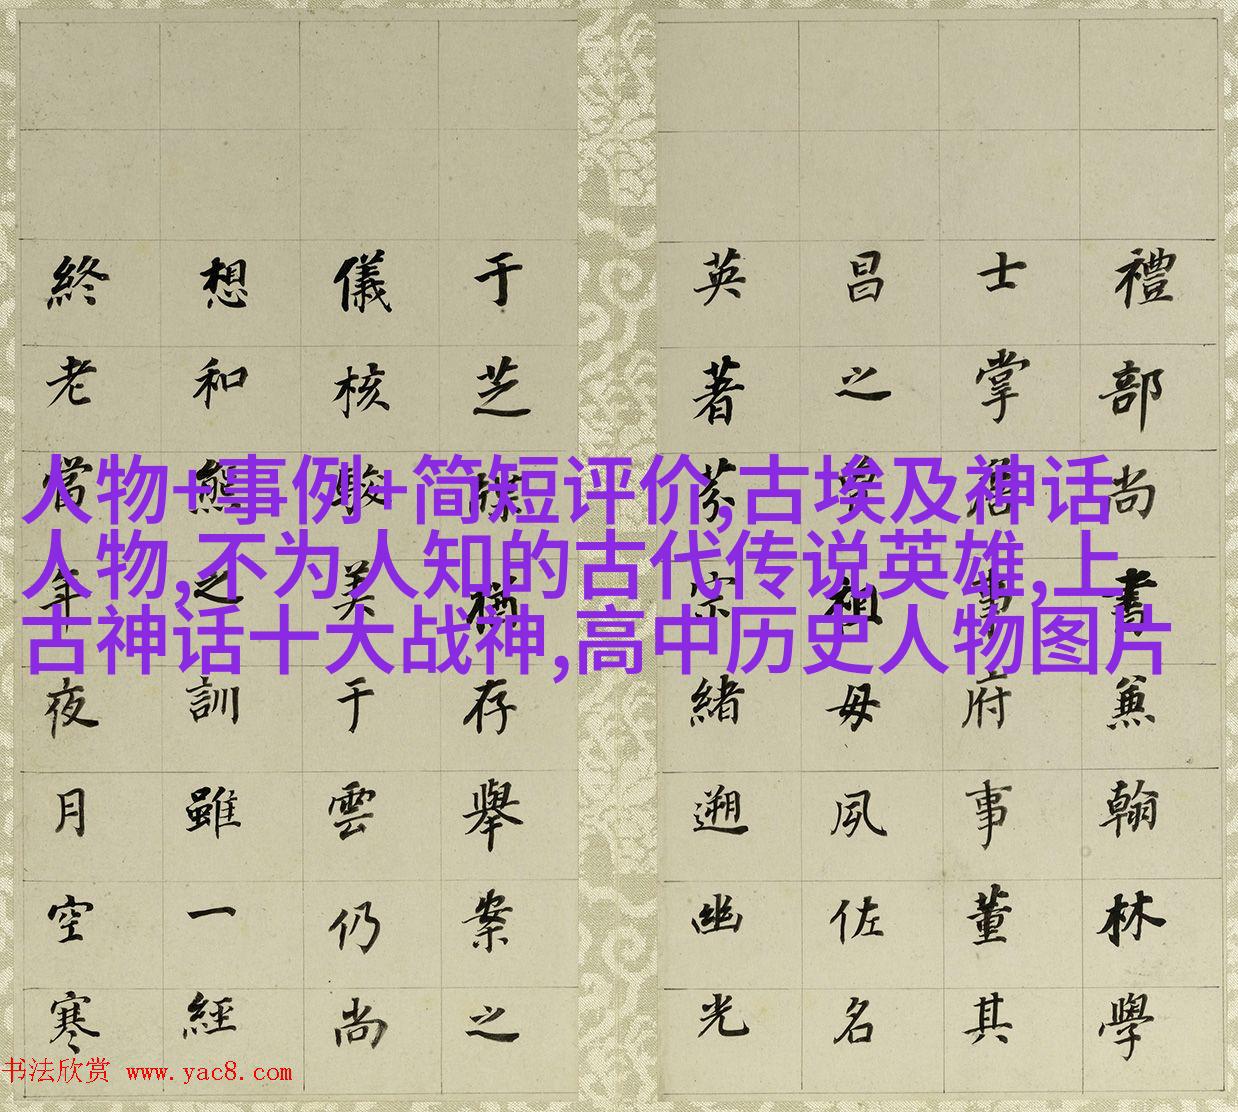 禮部尚書兼翰林學
士掌詹事府事董其
昌之祖母夙佐名
英著芬宗緒遡幽光
于芝牒猶存舉案之
儀核駿美于雲仍尚
想和熊之訓雖一經
終老當年夜月空寒
人物+事例+简短评价,古埃及神话
人物,不为人知的古代传说英雄,上
古神话十大战神,高中历史人物图片
书法欣赏 www.yac8.com